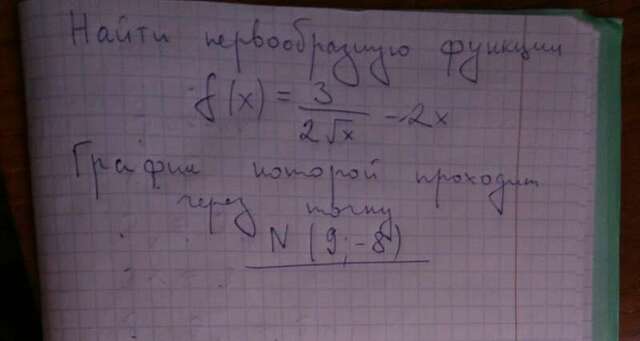 Найти первообразную функции
f(x) = 3/(2√x) - 2x
График которой проходит
через точку
N (9; -8)